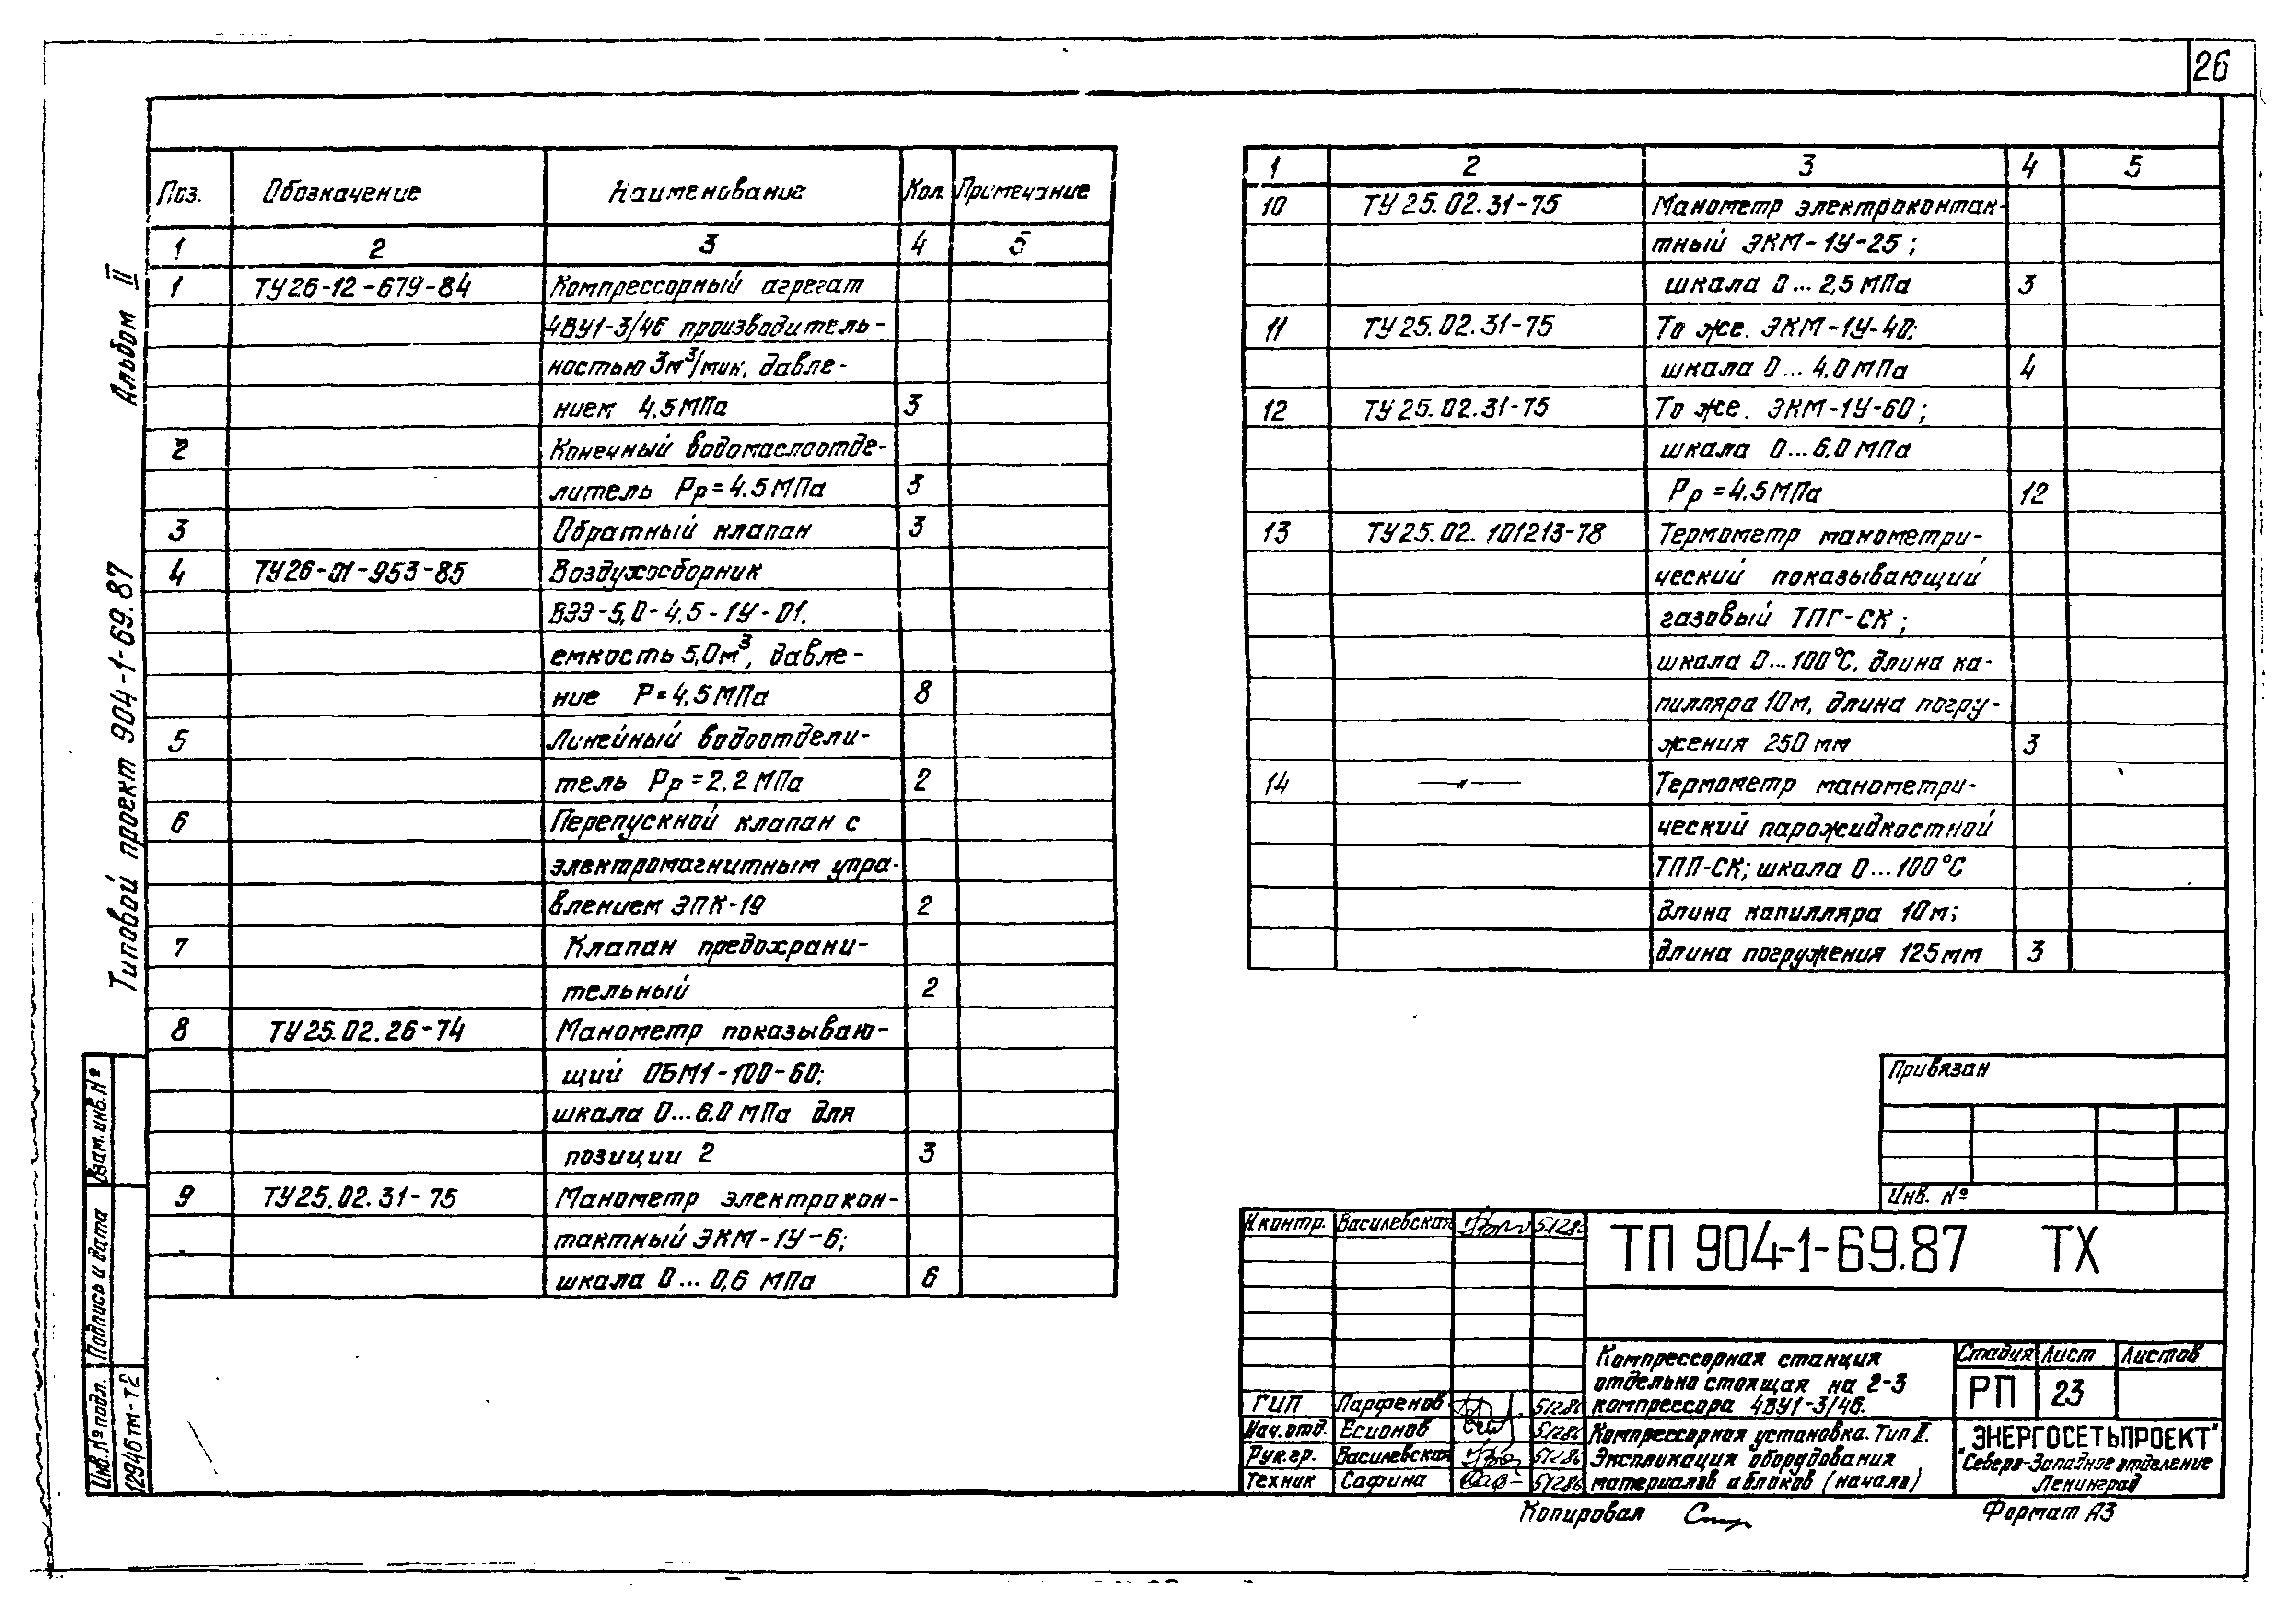 26
Альбом II
Типовой проект 904-1-69.87
Поз. Обозначение Наименование Кол. Примечание
1 2 3 4 5
1 ТУ26-12-679-84 Компрессорный агрегат
4ВУ1-3/46 производитель-
ностью 3м³/мин, давле-
нием 4,5МПа 3
2 Конечный водомаслоотде-
литель Рр=4.5МПа 3
3 Обратный клапан 3
4 ТУ26-01-953-85 Воздухосборник
ВЭЭ-5,0-4,5-1У-01.
емкость 5,0м³, давле-
ние Р=4,5МПа 8
5 Линейный водоотдели-
тель Рр=2.2МПа 2
6 Перепускной клапан с
электромагнитным упра-
влением ЭПК-19 2
7 Клапан предохрани-
тельный 2
8 ТУ25.02.26-74 Манометр показываю-
щий ОБМ1-100-60;
шкала 0...6.0 МПа для
позиции 2 3
9 ТУ25.02.31-75 Манометр электрокон-
тактный ЭКМ-1У-6;
шкала 0...0,6 МПа 6
1 2 3 4 5
10 ТУ25.02.31-75 Манометр электроконтак-
тный ЭКМ-1У-25;
шкала 0...2,5МПа 3
11 ТУ25.02.31-75 То же. ЭКМ-1У-40;
шкала 0...4,0МПа 4
12 ТУ25.02.31-75 То же. ЭКМ-1У-60;
шкала 0...6,0МПа
Рр=4.5МПа 12
13 ТУ25.02.101213-78 Термометр манометри-
ческий показывающий
газовый ТПГ-СК;
шкала 0...100°С, длина ка-
пилляра 10м, длина погру-
жения 250мм 3
14 —"— Термометр манометри-
ческий парожидкостной
ТПП-СК; шкала 0...100°С
длина капилляра 10м;
длина погружения 125мм 3
Привязан
Инв. №
Н.контр. Василевская 51286
ТП 904-1-69.87 ТХ
Компрессорная станция
отдельно стоящая на 2-3
компрессора 4ВУ1-3/46.
Стадия Лист Листов
РП 23
ГИП Парфенов 51286
Нач.отд. Есионов 51286
Рук.гр. Василевская 51286
Техник Сафина 51286
Компрессорная установка. Тип II.
Экспликация оборудования
материалов и блоков (начало)
"ЭНЕРГОСЕТЬПРОЕКТ"
Северо-Западное отделение
Ленинград
Копировал
Формат А3
Взам.инв.№
Подпись и дата
Инв.№ подл.
12946тм-т2